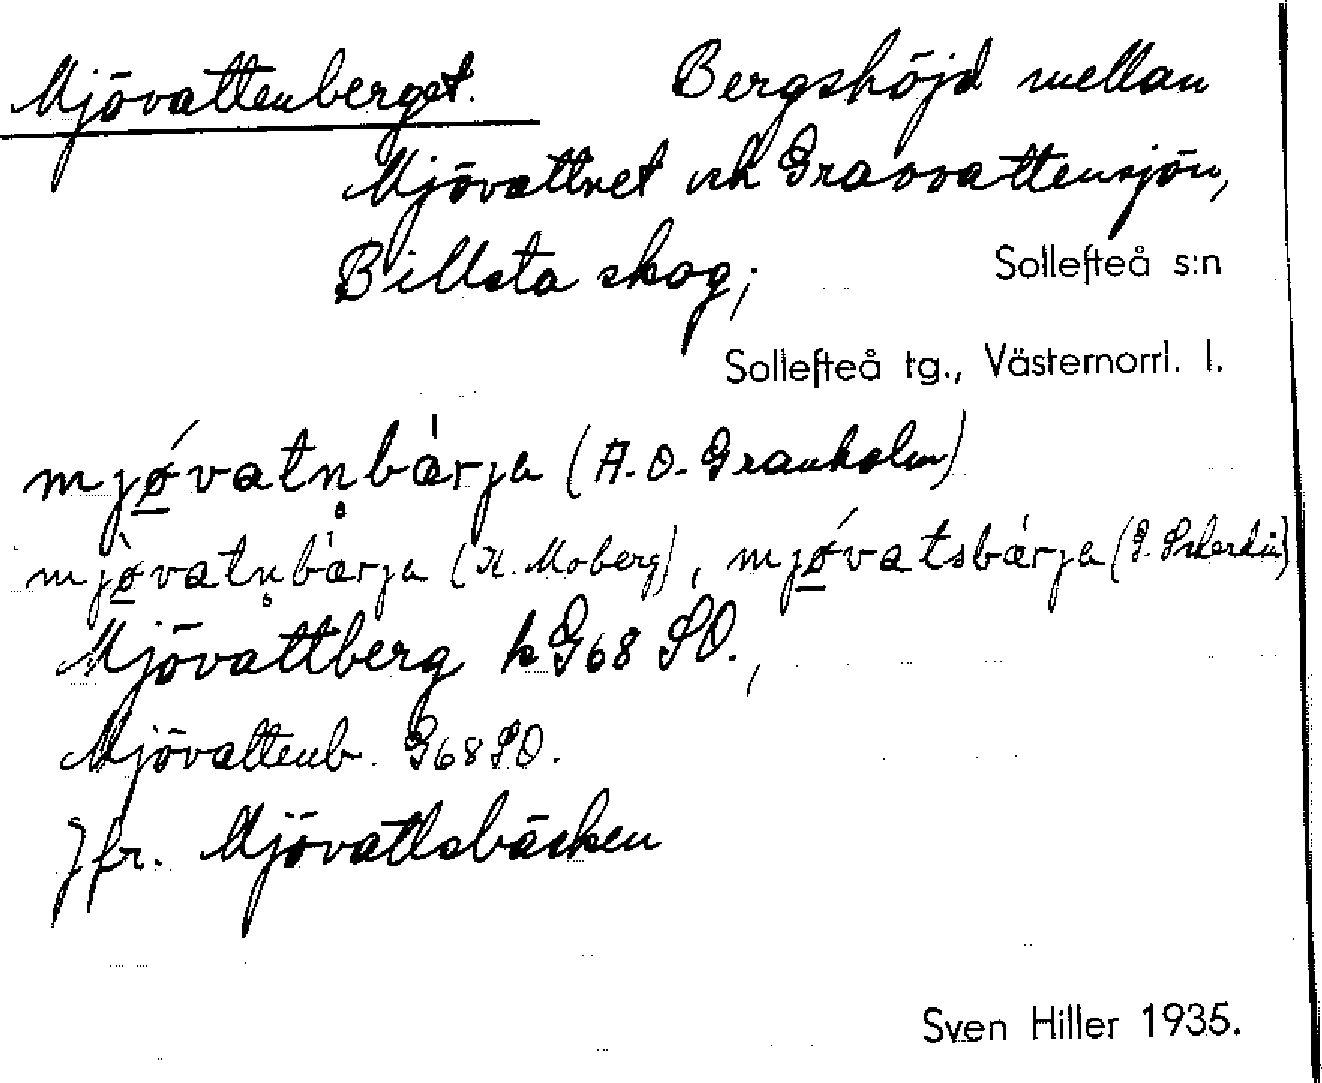 Mjövattenberget. Bergshöjd mellan
Mjövattnet och Gravvattensjön,
Billsta skog; Sollefteå s:n
Sollefteå tg., Västernorrl. l.
mjǿvatn̥bàrja (A. O. Granholm)
mjøvatn̥bàrja (K. Moberg), mjǿvatsbàrja
Mjövattberg k G68 SO.,
Mjövattenb. G68 SO.
Jfr. Mjövattsbäcken
Sven Hiller 1935.